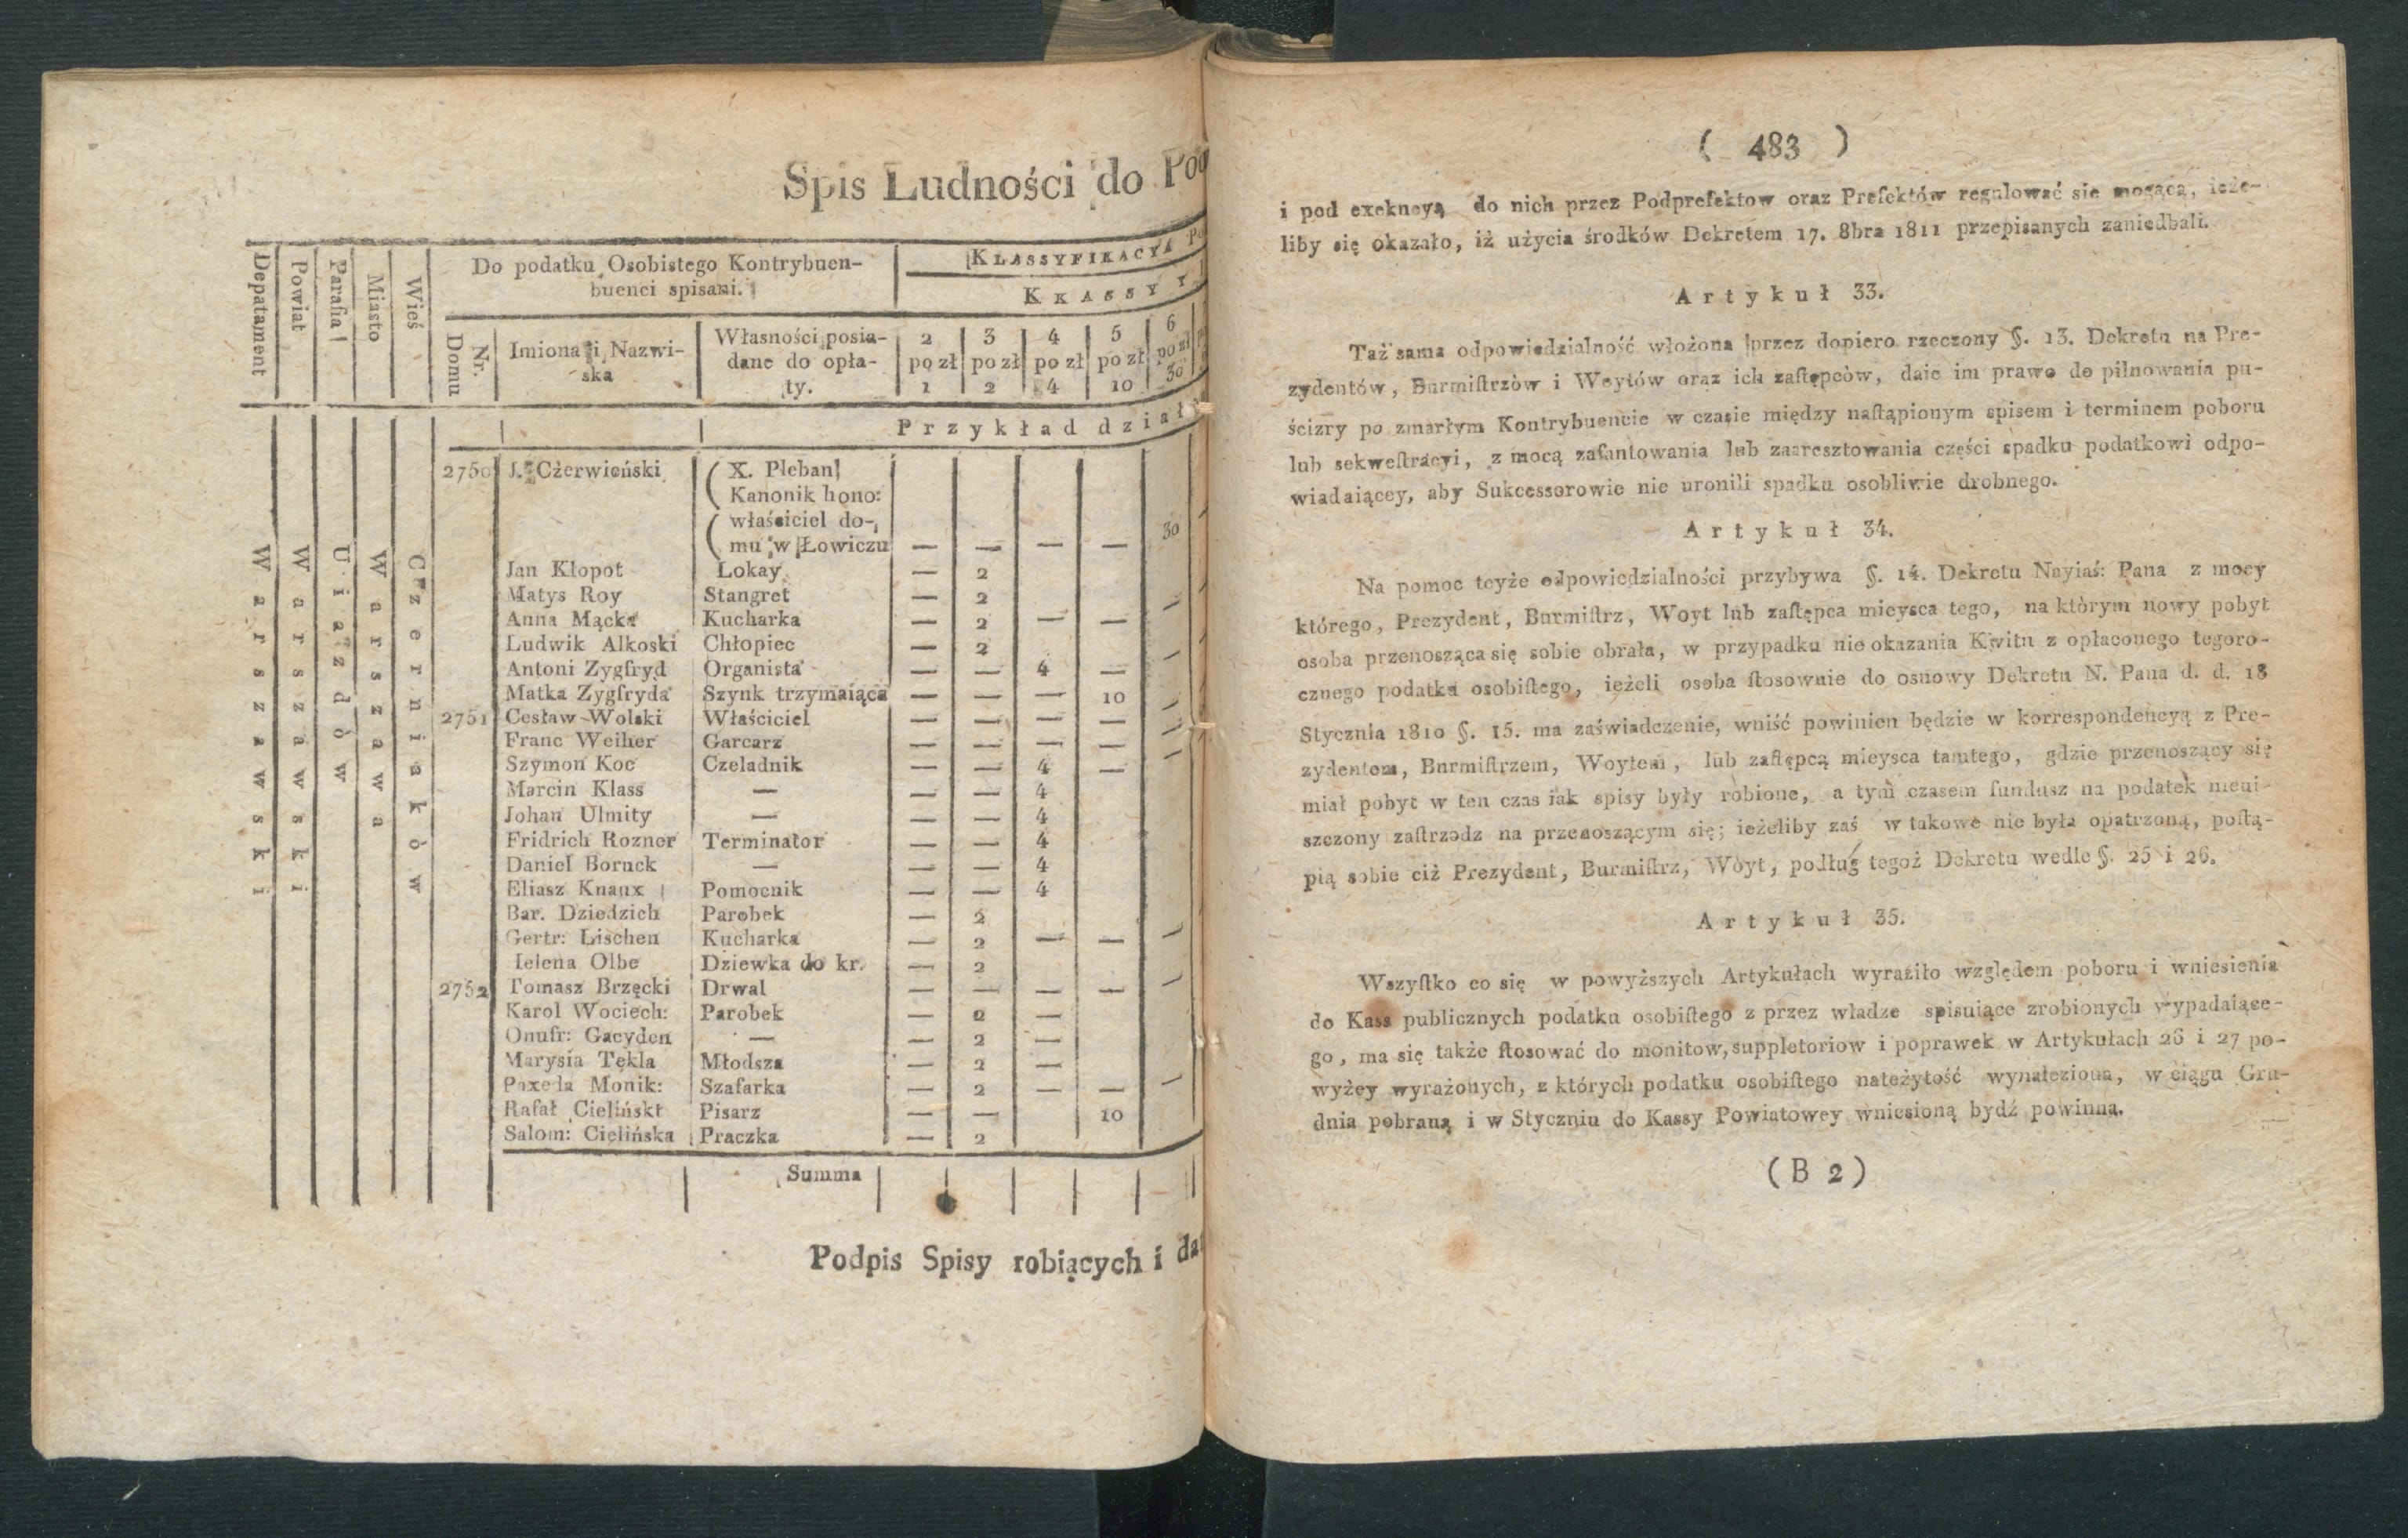 Spis Ludności do
Depatament
Powiat
Parafia
Miasto
Wieś
Do podatku Osobistego Kontrybuen-
buenci spisani.
KLASSYFIKACYA
KKASSY
Nr. Domu
Imiona i Nazwi-
ska
Własności posia-
dane do opła-
ty.
2 po zł 1
3 po zł 2
4 po zł 4
5 po zł 10
6 po zł 30
Przykład
Warszawski
Warszawski
Uiazdòw
Warszawa
Czerniakòw
2750 J. Czerwieński ( X. Pleban
( Kanonik hono:
( właściciel do-
( mu w Łowiczu — — — — 30
Jan Kłopot Lokay — 2
Matys Roy Stangret — 2 —
Anna Mącka Kucharka — 2 — —
Ludwik Alkoski Chłopiec — 2
Antoni Zygfryd Organista — — 4 — —
Matka Zygfryda Szynk trzymaiąca — — — 10 —
2751 Cesław Wolski Właściciel — — — — —
Franc Weiher Garcarz — — — — —
Szymon Koc Czeladnik — — 4 —
Marcin Klass — — — 4
Johan Ulmity — — — 4
Fridrich Rozner Terminator — — 4
Daniel Boruck — — — 4
Eliasz Knaux Pomocnik — — 4
Bar. Dziedzich Parobek — 2
Gertr: Lischen Kucharka — 2 — — —
Ielena Olbe Dziewka do kr. — 2
2752 Tomasz Brzęcki Drwal — — — — —
Karol Wociech: Parobek — 2 —
Onufr: Gacyden — — 2 —
Marysia Tękla Młodsza — 2 —
Paxeda Monik: Szafarka — 2 — — —
Rafał Cieliński Pisarz — — 10
Salom: Cielińska Praczka — 2
Summa
Podpis Spisy robiących i
( 483 )
i pod exekucyą do nich przez Podprefektow oraz Prefektów regulować sie mogącą, ieże-
liby się okazało, iż użycia środków Dekretem 17. 8bra 1811 przepisanych zaniedbali.
Artykuł 33.
Taż sama odpowiedzialność włożona przez dopiero rzeczony §. 13. Dekretu na Pre-
zydentów, Burmiſtrzòw i Woytów oraz ich zaſtępcòw, daie im prawo do pilnowania pu-
ścizny po zmarłym Kontrybuencie w czasie między naſtąpionym spisem i terminem poboru
lub sekweſtracyi, z mocą zafantowania lub zaaresztowania części spadku podatkowi odpo-
wiadaiącey, aby Sukcessorowie nie uronili spadku osobliwie drobnego.
Artykuł 34.
Na pomoc teyże odpowiedzialności przybywa §. 14. Dekretu Nayiaś: Pana z mocy
którego, Prezydent, Burmiſtrz, Woyt lub zaſtępca mieysca tego, na którym nowy pobyt
osoba przenosząca się sobie obrała, w przypadku nie okazania Kwitu z opłaconego tegoro-
cznego podatku osobiſtego, ieżeli osoba ſtosownie do osnowy Dekretu N. Pana d. d. 18
Stycznia 1810 §. 15. ma zaświadczenie, wniść powinien będzie w korrespondencyą z Pre-
zydentem, Burmiſtrzem, Woytem, lub zaſtępcą mieysca tamtego, gdzie przenoszący się
miał pobyt w ten czas iak spisy były robione, a tym czasem fundusz na podatek nieui-
szczony zaſtrzedz na przenoszącym się; ieżeliby zaś w takowe nie była opatrzoną, poſtą-
pią sobie ciż Prezydent, Burmiſtrz, Woyt, podług tegoż Dekretu wedle §. 25 i 26.
Artykuł 35.
Wszyſtko co się w powyższych Artykułach wyraziło względem poboru i wniesienia
do Kass publicznych podatku osobiſtego z przez władze spisuiące zrobionych wypadaiące-
go, ma się także ſtosować do monitow, suppletoriow i poprawek w Artykułach 26 i 27 po-
wyżey wyrażonych, z których podatku osobiſtego należytość wynaleziona, w ciągu Gru-
dnia pobraną i w Styczniu do Kassy Powiatowey wniesioną bydź powinna.
(B 2)